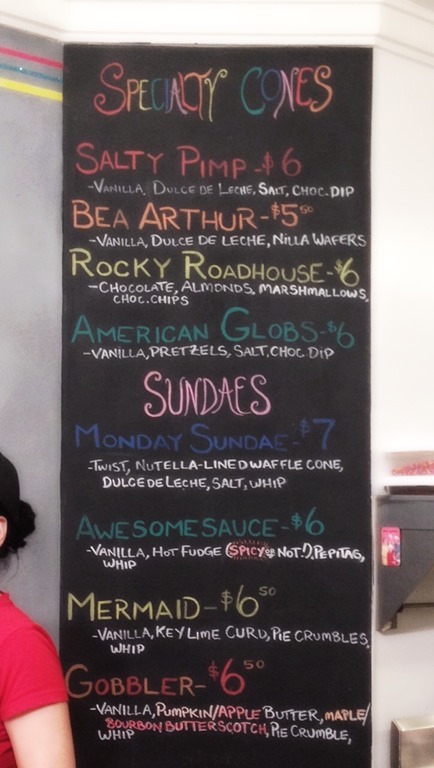 SPECIALTY CONES
SALTY PIMP-$6
-VANILLA, DULCE DE LECHE, SALT, CHOC. DIP
BEA ARTHUR-$5.50
-VANILLA, DULCE DE LECHE, NILLA WAFERS
ROCKY ROADHOUSE-$6
-CHOCOLATE, ALMONDS, MARSHMALLOWS,
CHOC. CHIPS
AMERICAN GLOBS-$6
-VANILLA, PRETZELS, SALT, CHOC. DIP
SUNDAES
MONDAY SUNDAE-$7
-TWIST, NUTELLA-LINED WAFFLE CONE,
DULCE DE LECHE, SALT, WHIP
AWESOMESAUCE-$6
-VANILLA, HOT FUDGE (SPICY OR NOT!), PEPITAS,
WHIP
MERMAID-$6.50
-VANILLA, KEY LIME CURD, PIE CRUMBLES,
WHIP
GOBBLER-$6.50
-VANILLA, PUMPKIN/APPLE BUTTER, MAPLE/
BOURBON BUTTERSCOTCH, PIE CRUMBLE,
WHIP